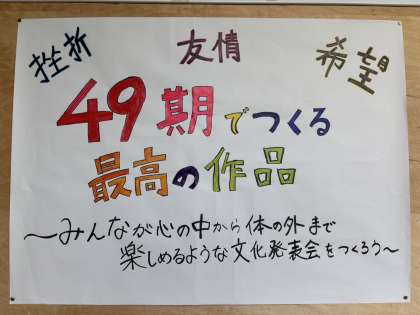 挫折 友情 希望
49期でつくる
最高の作品
～みんなが心の中から体の外まで
楽しめるような文化発表会をつくろう～